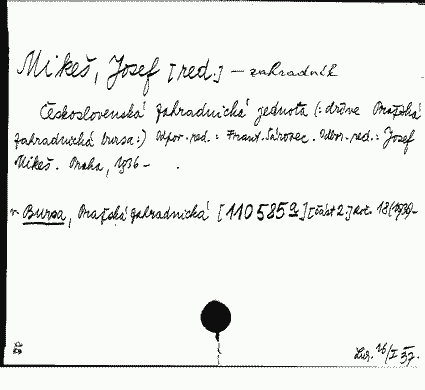 Mikeš, Josef [red.] – zahradník
Československá zahradnická jednota (: dříve Pražská
zahradnická bursa :) Odpov. red.: Frant. Šárovec. Odbor. red.: Josef
Mikeš. Praha, 1936 –
v Bursa, Pražská zahradnická [110585 a] [část 2.] Roč. 18 (1939–
Lir. 26/I 37.